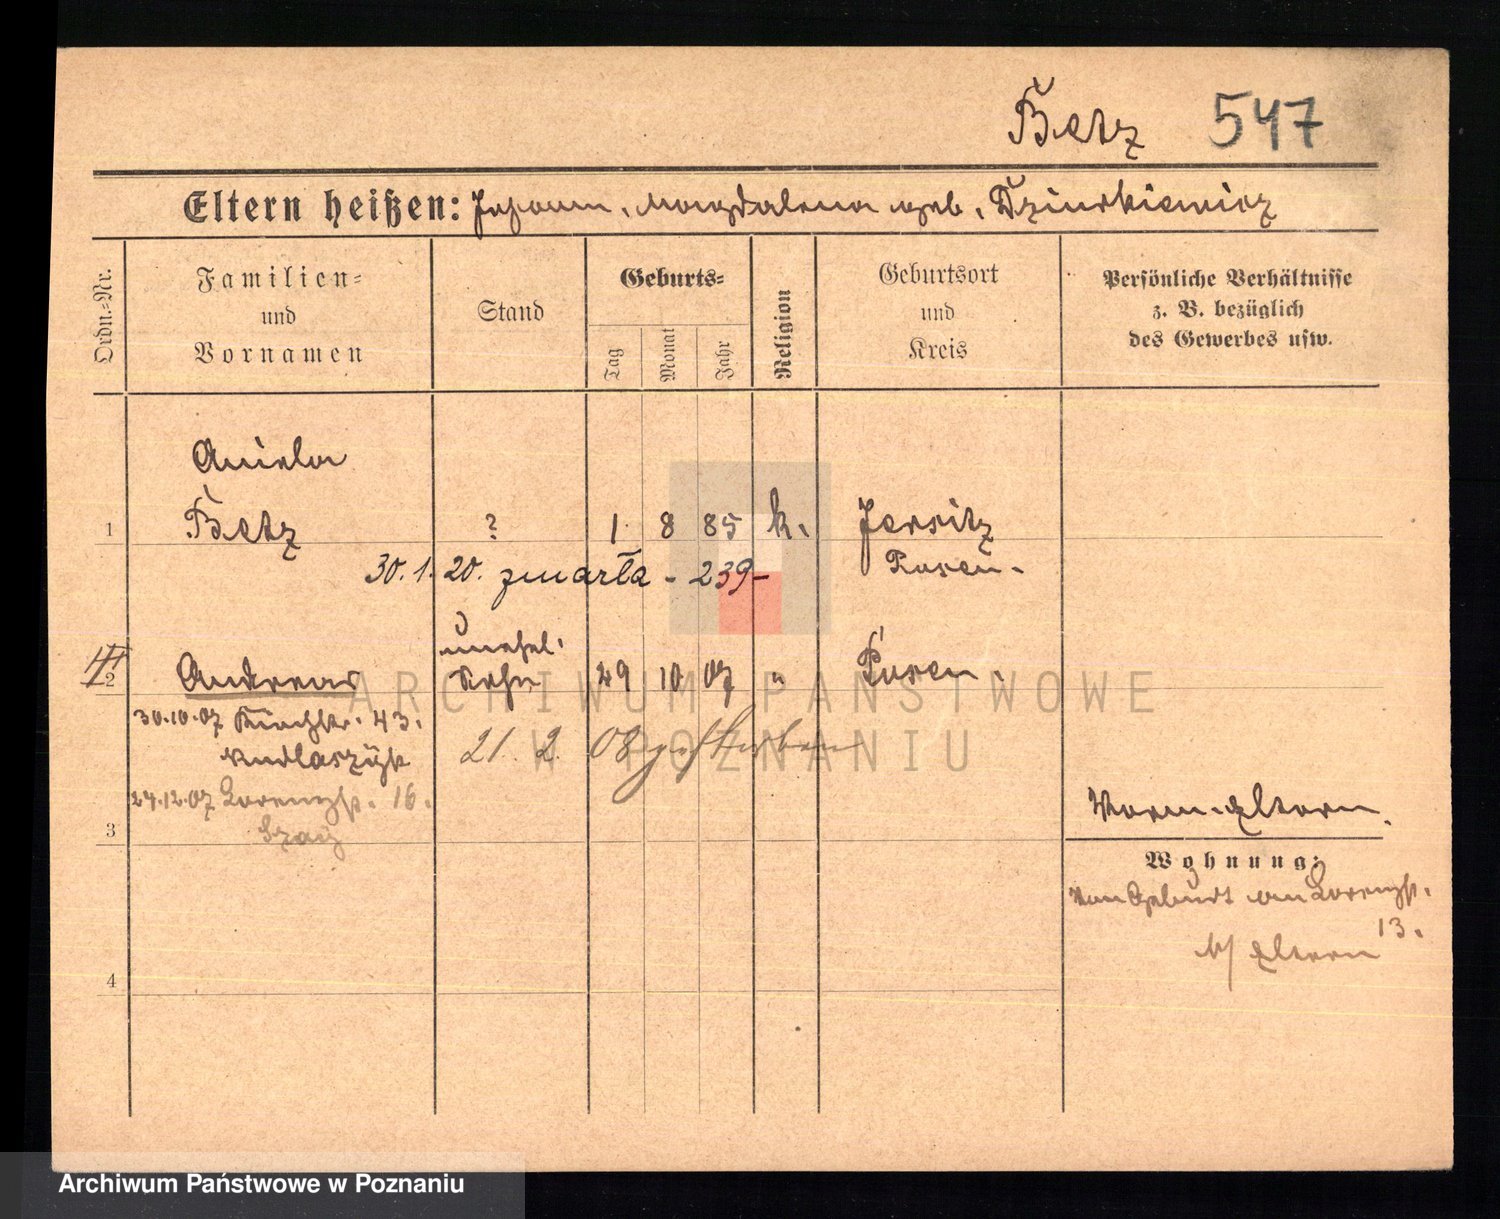 Betz 547
Eltern heißen: Johann, Magdalena geb. Dziurkiewicz
Ordn.-Nr.
Familien-
und
Vornamen
Stand
Geburts-
Tag
Monat
Jahr
Religion
Geburtsort
und
Kreis
Persönliche Verhältnisse
z. B. bezüglich
des Gewerbes usw.
Aniela
1 Betz ? 1 8 85 k. Jersitz
30.1.20. zmarła - 239- Posen.
unehel.
2 Andreas Sohn 29 10 07 " Posen.
30.10.07 Kirchstr. 43.
21. 2. 08 gestorben
24.12.07 Lorenzstr. 16.
3
Vorm. Eltern.
Wohnung:
Von Geburt an Lorenzstr.
13.
b/ Eltern
4
ARCHIWUM PAŃSTWOWE
W POZNANIU
Archiwum Państwowe w Poznaniu